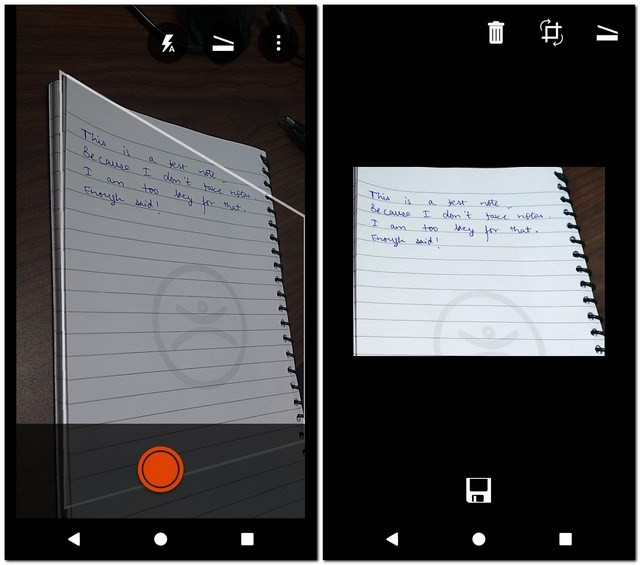 A
This is a test note
Because I don't take notes.
I am too lazy for that.
Enough said!
This is a test note.
Because I don't take notes.
I am too lazy for that.
Enough said!